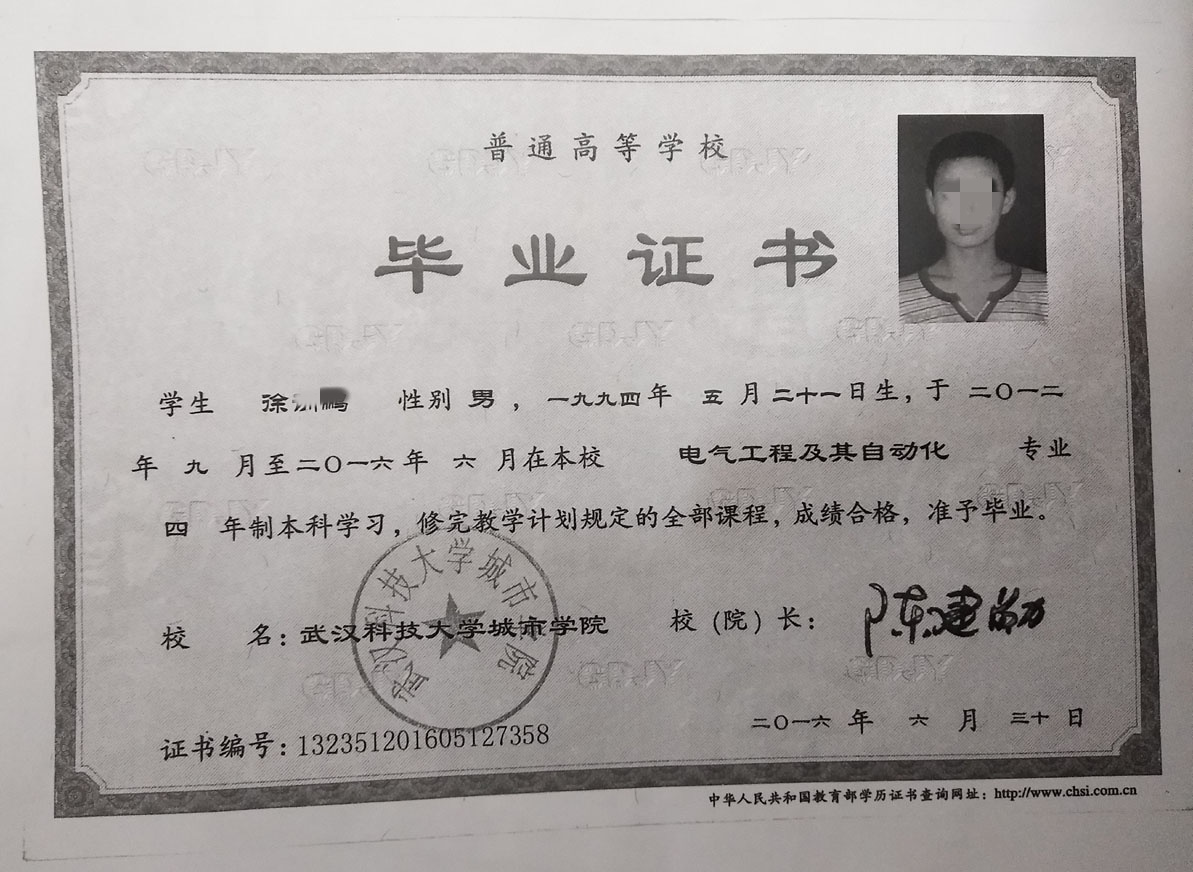 普通高等学校
毕业证书
学生 徐 鹏 性别 男 ，一九九四年 五 月二十一日生，于 二〇一二
年 九 月至二〇一六年 六 月在本校 电气工程及其自动化 专业
四 年制本科学习，修完教学计划规定的全部课程，成绩合格，准予毕业。
武汉科技大学城市学院
校 名：武汉科技大学城市学院 校（院）长：陈建勋
二〇一六 年 六 月 三十 日
证书编号：132351201605127358
中华人民共和国教育部学历证书查询网址：http://www.chsi.com.cn